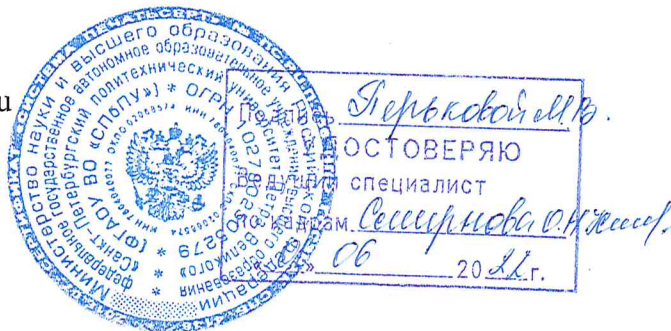 и
Министерство науки и высшего образования Российской Федерации
федеральное государственное автономное образовательное учреждение высшего образования
«Санкт-Петербургский политехнический университет Петра Великого»
(ФГАОУ ВО «СПбПУ») * ОГРН 1027802505279 *
Перьковой М.В.
УДОСТОВЕРЯЮ
Ведущий специалист
по кадрам Смирнова О.Н.
06 2022 г.